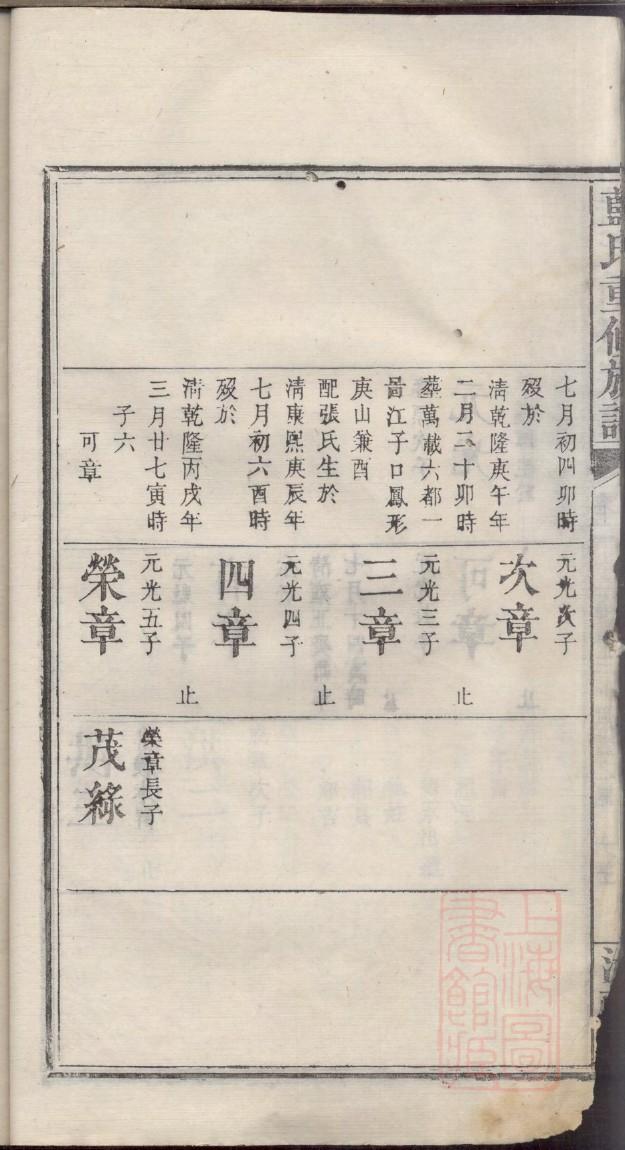 藍氏重修族譜
七月初四卯時
歿於
清乾隆庚午年
二月二十卯時
葬萬載六都一
啚江子口鳳形
庚山兼酉
配張氏生於
清康熙庚辰年
七月初六酉時
歿於
清乾隆丙戌年
三月廿七寅時
子六
可章
元光次子
次章
止
元光三子
三章
止
元光四子
四章
止
元光五子
榮章
榮章長子
茂綠
上海圖
書館藏